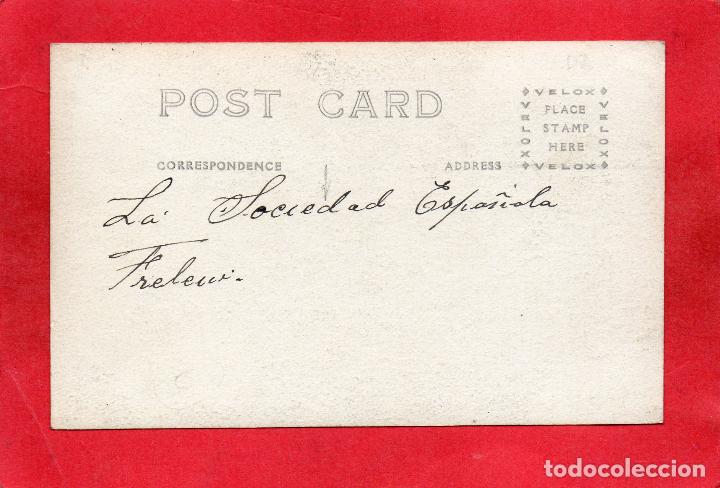 POST CARD
VELOX
PLACE
STAMP
HERE
VELOX
VELOX
VELOX
CORRESPONDENCE
ADDRESS
La Sociedad Española
Trelew.
todocoleccion